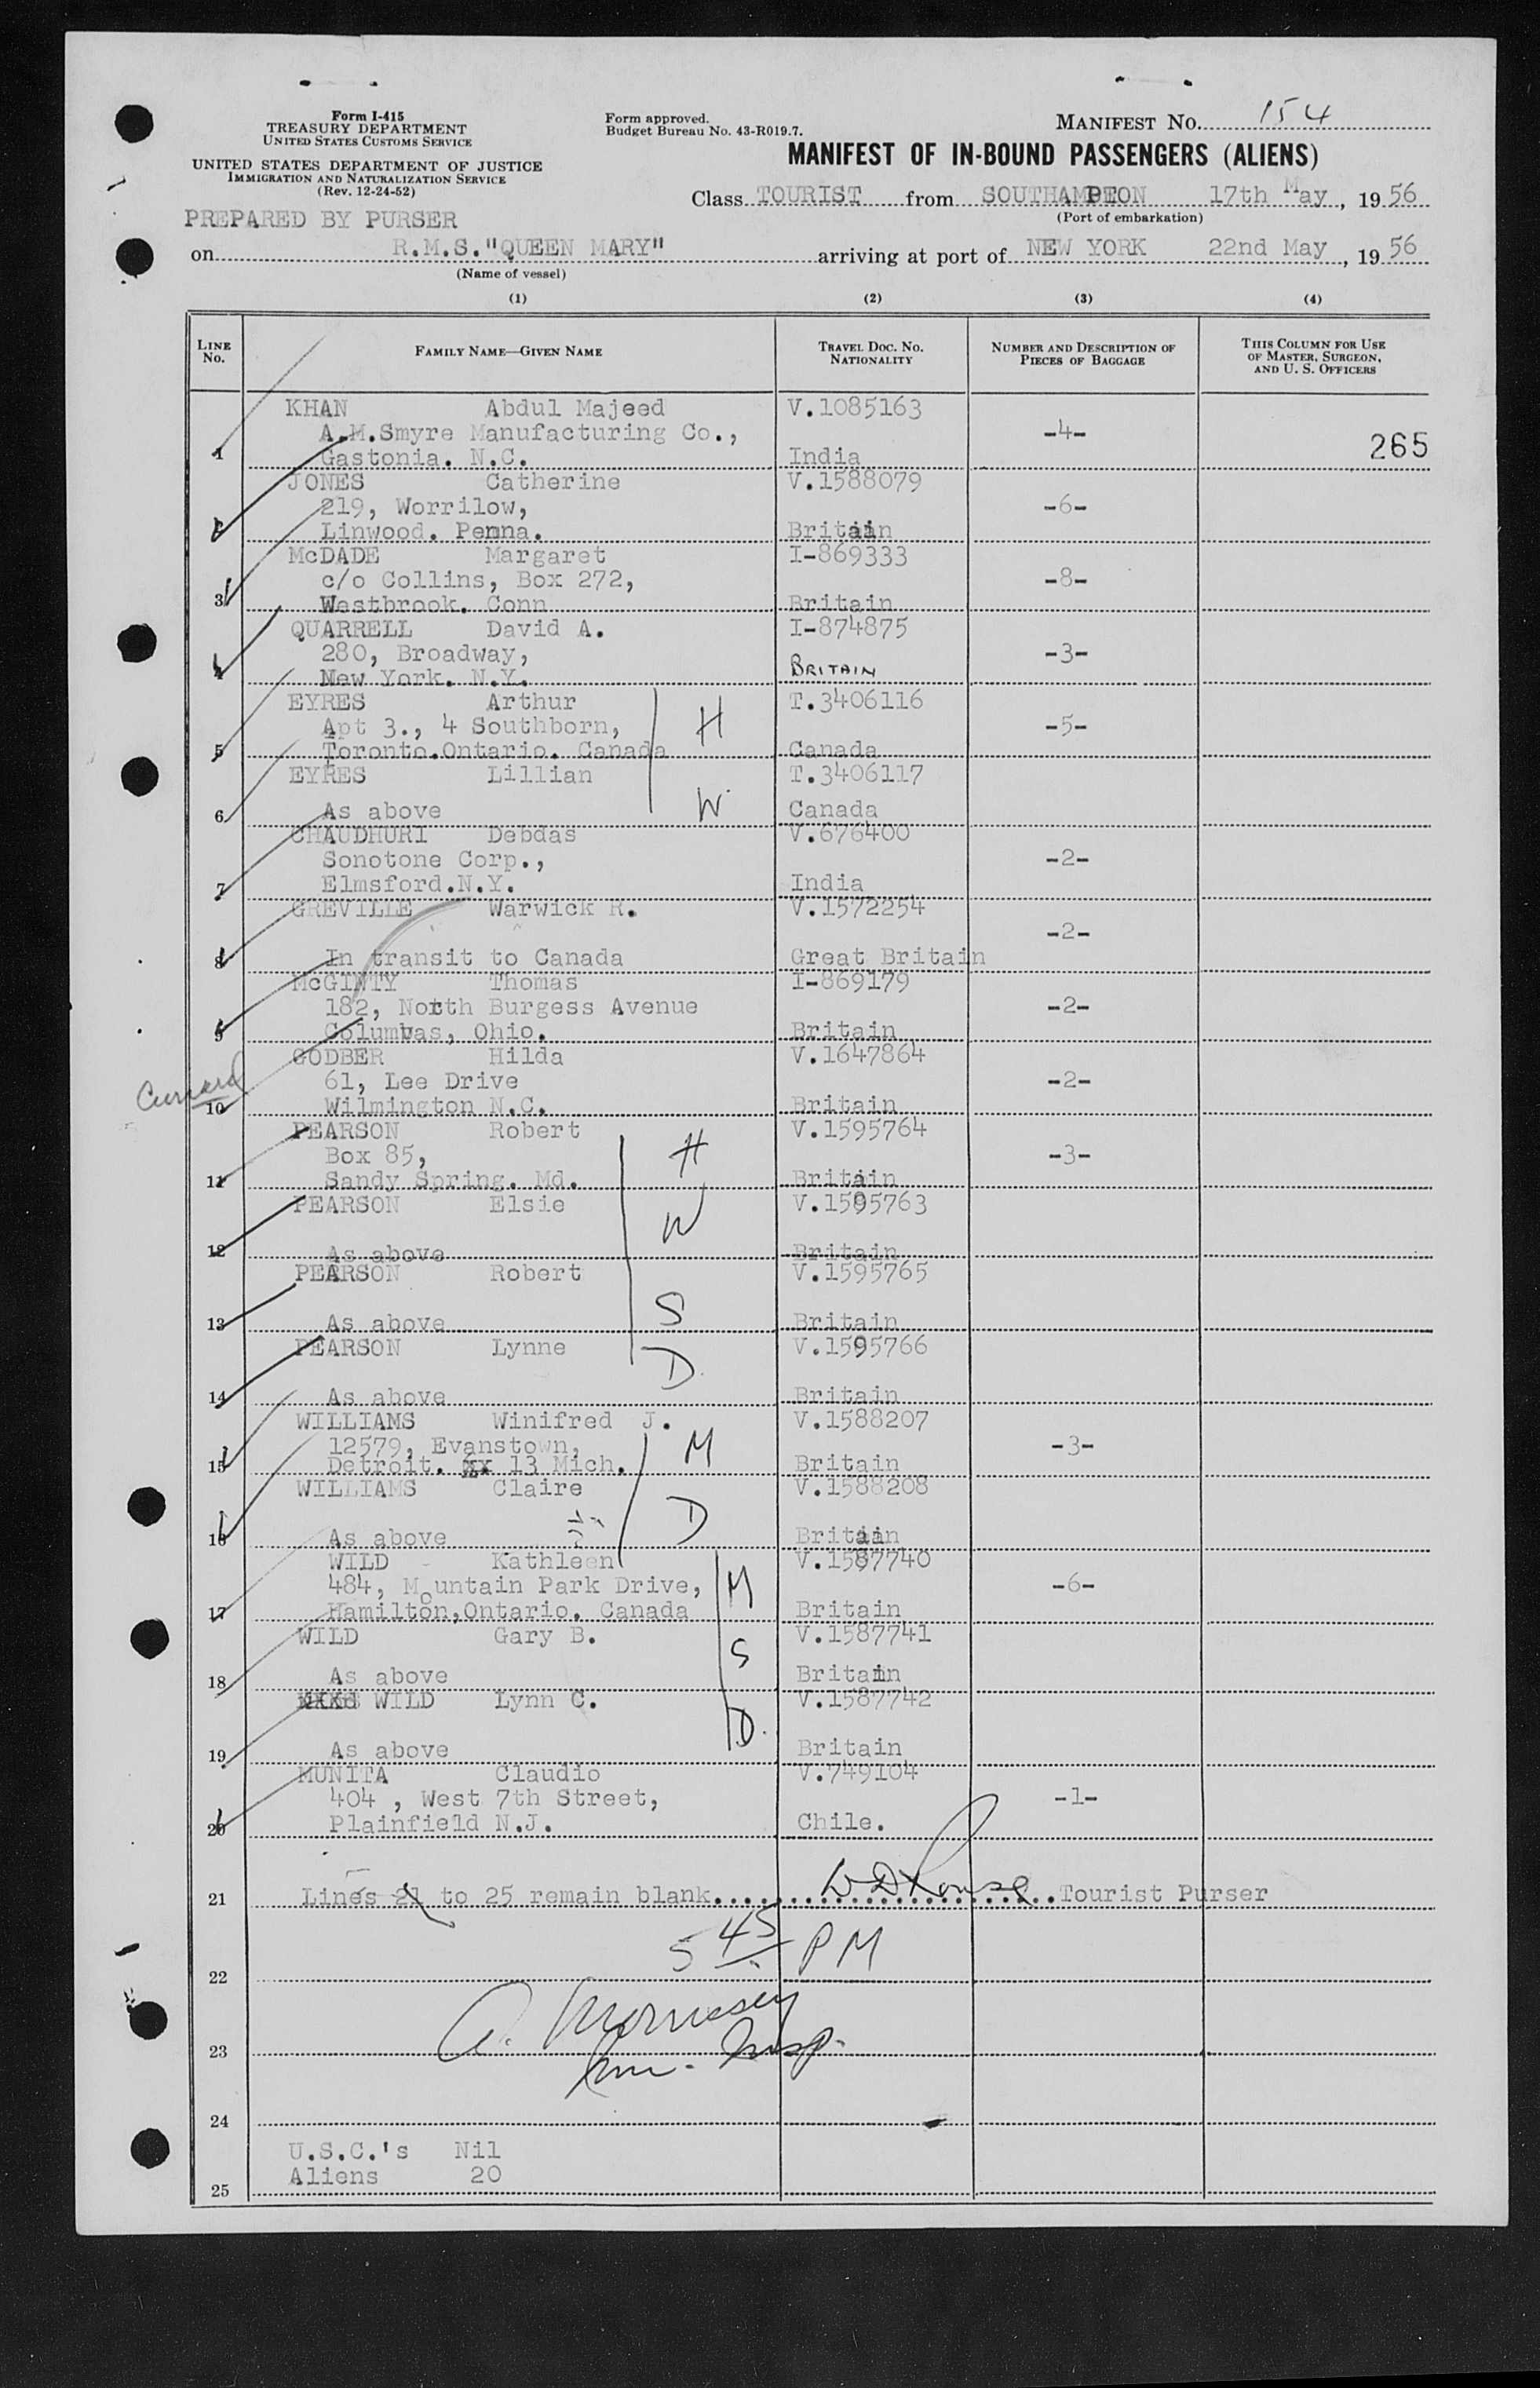 Form I-415
TREASURY DEPARTMENT
UNITED STATES CUSTOMS SERVICE
UNITED STATES DEPARTMENT OF JUSTICE
IMMIGRATION AND NATURALIZATION SERVICE
(Rev. 12-24-52)
PREPARED BY PURSER
Form approved.
Budget Bureau No. 43-R019.7.
MANIFEST NO. 154
MANIFEST OF IN-BOUND PASSENGERS (ALIENS)
Class TOURIST from SOUTHAMPTON 17th May, 1956
(Port of embarkation)
on R.M.S."QUEEN MARY" arriving at port of NEW YORK 22nd May, 1956
(Name of vessel)
(1) (2) (3) (4)
LINE No. FAMILY NAME—GIVEN NAME TRAVEL DOC. NO. NATIONALITY NUMBER AND DESCRIPTION OF PIECES OF BAGGAGE THIS COLUMN FOR USE OF MASTER, SURGEON, AND U. S. OFFICERS
KHAN Abdul Majeed V.1085163
A.M.Smyre Manufacturing Co., -4-
1 Gastonia. N.C. India 265
JONES Catherine V.1588079
219, Worrilow, -6-
2 Linwood. Penna. Britain
McDADE Margaret I-869333
c/o Collins, Box 272, -8-
3 Westbrook. Conn Britain
QUARRELL David A. I-874875
280, Broadway, -3-
4 New York. N.Y. BRITAIN
EYRES Arthur T.3406116
Apt 3., 4 Southborn, H -5-
5 Toronto.Ontario. Canada Canada
EYRES Lillian T.3406117
6 As above W. Canada
CHAUDHURI Debdas V.676400
Sonotone Corp., -2-
7 Elmsford.N.Y. India
GREVILLE Warwick R. V.1572254
-2-
8 In transit to Canada Great Britain
McGINTY Thomas I-869179
182, North Burgess Avenue -2-
9 Columbas, Ohio. Britain
GODBER Hilda V.1647864
61, Lee Drive -2-
Cunard
10 Wilmington N.C. Britain
PEARSON Robert V.1595764
Box 85, H -3-
11 Sandy Spring. Md. Britain
PEARSON Elsie V.1595763
W
12 As above Britain
PEARSON Robert V.1595765
S
13 As above Britain
PEARSON Lynne V.1595766
D.
14 As above Britain
WILLIAMS Winifred J. V.1588207
12579, Evanstown, M -3-
15 Detroit. xx 13 Mich. Britain
WILLIAMS Claire V.1588208
D
16 As above Britain
WILD Kathleen V.1587740
484, Mountain Park Drive, M -6-
17 Hamilton,Ontario. Canada Britain
WILD Gary B. V.1587741
S
18 As above Britain
WILD Lynn C. V.1587742
D.
19 As above Britain
MUNITA Claudio V.749104
404 , West 7th Street, -1-
20 Plainfield N.J. Chile.
21 Lines 21 to 25 remain blank. Tourist Purser
5 45 PM
22
A. Morrissey
23 Imm. Insp.
24
U.S.C.'s Nil
Aliens 20
25